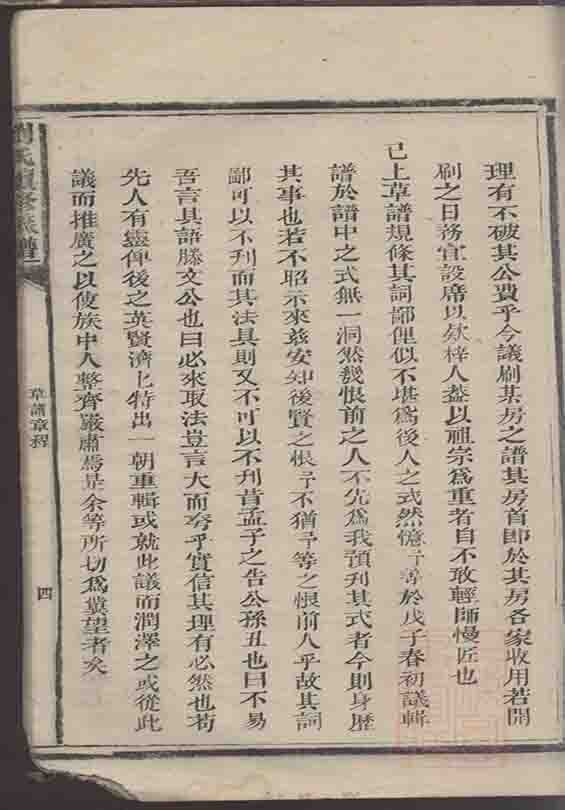 理有不破其公費乎今議刷某房之譜其房首即於其房各家收用若開
刷之日務宜設席以欵梓人葢以祖宗爲重者自不敢輕師慢匠也
已上草譜規條其詞鄙俚似不堪爲後人之式然憶予等於戊子春初議輯
譜於譜中之式無一洞然幾恨前之人不先爲我預刊其式者今則身歷
其事也若不昭示來兹安知後賢之恨予不猶予等之恨前人乎故其詞
鄙可以不刊而其法具則又不可以不刊昔孟子之告公孫丑也曰不易
吾言其語滕文公也曰必來取法豈言大而夸乎實信其理有必然也苟
先人有靈俾後之英賢濟匕特出一朝重輯或就此議而潤澤之或從此
議而推廣之以使族中人整齊嚴肅焉是余等所切爲冀望者矣
氏續修族譜
草譜章程
四